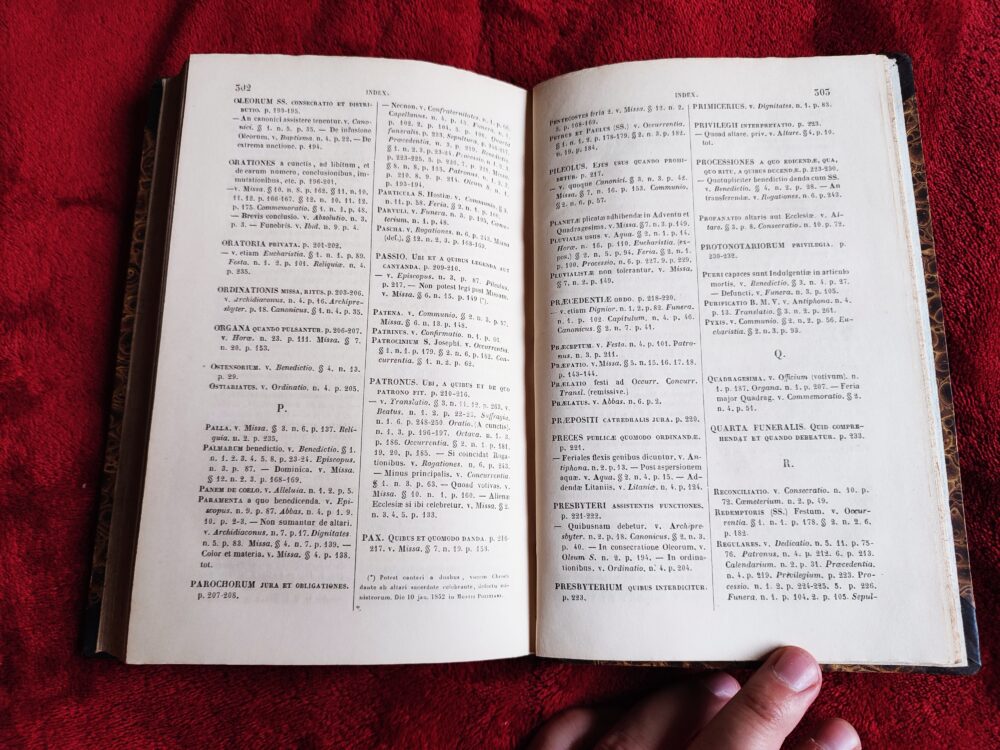 302
INDEX.
OLEORUM SS. CONSECRATIO ET DISTRI-
BUTIO. p. 193-195.
— An canonici assistere tenentur. v. Cano-
nici. § 1. n. 5. p. 35. — De infusione
Oleorum, v. Baptisma. n. 4. p. 22. — De
extrema unctione. p. 194.
ORATIONES a cunctis, ad libitum, et
de earum numero, conclusionibus, im-
mutationibus, etc. p. 196-201.
— v. Missa. § 10. n. 8. p. 162, § 11. n. 10,
11. 12. p. 166-167. § 12. n. 10. 11. 12.
p. 175. Commemoratio. § 1. n. 1. p. 48.
— Brevis conclusio. v. Absolutio. n. 3.
p. 3. — Funebris. v. Ibid. n. 9. p. 4.
ORATORIA PRIVATA. p. 201-202.
— v. etiam Eucharistia. § 1. n. 1. p. 89.
Festa. n. 1. 2. p. 101. Reliquiæ. n. 4.
p. 235.
ORDINATIONIS MISSA, RITUS. p. 203-206.
v. Archidiaconus. n. 4. p. 16. Archipre-
sbyter. p. 18. Canonicus. § 1. n. 4. p. 35.
ORGANA QUANDO PULSANTUR. p. 206-207.
v. Horæ. n. 23. p. 111. Missa. § 7.
n. 20. p. 153.
OSTENSORIUM. v. Benedictio. § 4. n. 13.
p. 29.
OSTIARIATUS. v. Ordinatio. n. 4. p. 205.
P.
PALLA. v. Missa. § 3. n. 6. p. 137. Reli-
quia. n. 2. p. 235.
PALMARUM benedictio. v. Benedictio. § 1.
n. 1. 2. 3. 4. 5. 8. p. 23-24. Episcopus.
n. 3. p. 87. — Dominica. v. Missa.
§ 12. n. 2. 3. p. 168-169.
PANEM DE COELO. v. Alleluia. n. 1. 2. p. 5.
PARAMENTA a quo benedicenda. v. Epi-
scopus. n. 9. p. 87. Abbas. n. 4. p. 1. 9.
10. p. 2-3. — Non sumantur de altari.
v. Archidiaconus. n. 7. p. 17. Dignitates
n. 5. p. 83. Missa. § 4. n. 7. p. 139. —
Color et materia. v. Missa. § 4. p. 138.
tot.
PAROCHORUM JURA ET OBLIGATIONES.
p. 207-208.
— Necnon. v. Confraternitates,
PARTICULA S. Hostiæ. v. Communio. § 3.
n. 11. p. 58. Feria. § 2. n. 1. p.
PARVULI. v. Funera. n. 3. p. 105.
terium. n. 1. p. 48.
PASCHA. v. Rogationes. n. 6. p. 243. Missa
(def.). § 12. n. 2. 3. p. 168-169.
PASSIO. UBI ET A QUIBUS LEGENDA AUT
CANTANDA. p. 209-210.
— v. Episcopus. n. 3. p. 87. Pileolus.
p. 217. — Non potest legi post Missam.
v. Missa. § 6. n. 15. p. 149 (*).
PATENA. v. Communio. § 2. n. 3. p. 57.
Missa. § 6. n. 13. p. 148.
PATRINUS. v. Confirmatio. n. 1. p. 61.
PATROCINIUM S. Josephi. v. Occurrentia.
§ 1. n. 1. p. 179. § 2. n. 6. p. 182. Con-
currentia. § 1. n. 2. p. 62.
PATRONUS. UBI, A QUIBUS ET DE QUO
PATRONO FIT. p. 210-216.
— v. Translatio. § 3. n. 11. 12. p. 263. v.
Beatus. n. 1. 2. p. 22-23. Suffragia.
n. 1. 6. p. 248-250. Oratio. (A cunctis).
n. 1. 3. p. 196-197. Octava. n. 1. 3.
p. 186. Occurrentia. § 2. n. 1. p. 181.
19. 20. p. 185. — Si coincidat Roga-
tionibus. v. Rogationes. n. 6. p. 243.
— Minus principalis. v. Concurrentia.
§ 1. n. 3. p. 63. — Quoad votivas. v.
Missa. § 10. n. 1. p. 160. — Alienæ
Ecclesiæ si ibi celebretur. v. Missa. § 2.
n. 3. 4. 5. p. 133.
PAX. QUIBUS ET QUOMODO DANDA. p. 216-
217. v. Missa. § 7. n. 19. p. 153.
(*) Potest cantari a duobus, vicem Christi
dante ab altari sacerdote celebrante, defectu mi-
nistrorum. Die 10 jan. 1852 in MONTIS POLITIANI.
303
INDEX.
PENTECOSTES feria 2. v. Missa. § 12. n. 2.
3. p. 168-169.
PETRUS ET PAULUS (SS.) v. Occurrentia.
§ 1. n. 1. 2. p. 178-179. § 2. n. 3. p. 182.
n. 19. p. 184.
PILEOLUS. EJUS USUS QUANDO PROHI-
BETUR. p. 217.
— v. quoque Canonici. § 3. n. 3. p. 42.
Missa. § 7. n. 16. p. 153. Communio.
§ 2. n. 6. p. 57.
PLANETÆ plicatæ adhibendæ in Adventu et
Quadragesima. v. Missa. §7. n. 3. p. 149.
PLUVIALIS usus v. Aqua. § 2. n. 1. p. 14.
Horæ. n. 16. p. 110. Eucharistia. (ex-
pos.) § 2. n. 5. p. 94. Feria. § 2. n. 1.
p. 100. Processio. n. 6. p. 227. 9. p. 229.
PLUVIALISTÆ non tolerantur. v. Missa.
§ 7. n. 2. p. 149.
PRÆCEDENTIÆ ORDO. p. 218-220.
— v. etiam Dignior. n. 1. 2. p. 82. Funera.
n. 1. p. 102. Capitulum. n. 4. p. 46.
Canonicus. § 2. n. 7. p. 41.
PRÆCEPTUM. v. Festa. n. 4. p. 101. Patro-
nus. n. 3. p. 211.
PRÆFATIO. v. Missa. § 5. n. 15. 16. 17. 18.
p. 143-144.
PRÆLATIO festi ad Occurr. Concurr.
Transl. (remissive.)
PRÆLATUS. v. Abbas. n. 6. p. 2.
PRÆPOSITI CATHEDRALIS JURA. p. 220.
PRECES PUBLICÆ QUOMODO ORDINANDÆ.
p. 221.
— Feriales flexis genibus dicuntur. v. An-
tiphona. n. 2. p. 13. — Post aspersionem
aquæ. v. Aqua. § 2. n. 4. p. 15. — Ad-
dendæ Litaniis. v. Litaniæ. n. 4. p. 124.
PRESBYTERI ASSISTENTIS FUNCTIONES.
p. 221-222.
— Quibusnam debetur. v. Archipre-
sbyter. n. 2. p. 18. Canonicus. § 2. n. 3.
p. 40. — In consecratione Oleorum. v.
Oleum S. n. 2. p. 194. — In ordina-
tionibus. v. Ordinatio. n. 4. p. 204.
PRESBYTERIUM QUIBUS INTERDICITUR.
p. 223.
PRIMICERIUS. v. Dignitates. n. 1. p. 83.
PRIVILEGII INTERPRETATIO. p. 223.
— Quoad altare. priv. v. Altare. § 4. p. 10.
tot.
PROCESSIONES A QUO EDICENDÆ, QUA,
QUO RITU, A QUIBUS DUCENDÆ. p. 223-230.
— Quotupliciter benedictio danda cum SS.
v. Benedictio. § 4. n. 2. p. 28. — An
transferendæ. v. Rogationes. n. 6. p. 243.
PROFANATIO altaris aut Ecclesiæ. v. Al-
tare. § 3. p. 8. Consecratio. n. 10. p. 72.
PROTONOTARIORUM PRIVILEGIA. p.
230-232.
PUERI capaces sunt Indulgentiæ in articulo
mortis. v. Benedictio. § 3. n. 4. p. 27.
— Defuncti, v. Funera. n. 3. p. 105.
PURIFICATIO B. M. V. v. Antiphona. n. 4.
p. 13. Translatio. § 3. n. 2. p. 261.
PYXIS. v. Communio. § 2. n. 2. p. 56. Eu-
charistia. § 2. n. 3. p. 93.
Q.
QUADRAGESIMA. v. Officium (votivum). n.
1. p. 187. Organa. n. 1. p. 207. — Feria
major Quadrag. v. Commemoratio. § 2.
n. 4. p. 51.
QUARTA FUNERALIS. QUID COMPRE-
HENDAT ET QUANDO DEBEATUR. p. 233.
R.
RECONCILIATIO. v. Consecratio. n. 10. p.
72. Cæmeterium. n. 2. p. 49.
REDEMPTORIS (SS.) Festum. v. Occur-
rentia. § 1. n. 1. p. 178. § 2. n. 2. 6.
p. 182.
REGULARES. v. Dedicatio. n. 5. 11. p. 75-
76. Patronus. n. 4. p. 212. 6. p. 213.
Calendarium. n. 2. p. 31. Præcedentia.
n. 4. p. 219. Privilegium. p. 223. Pro-
cessio. n. 1. 2. p. 224-225. 5. p. 226.
Funera. n. 1. p. 104. 2. p. 105. Sepul-